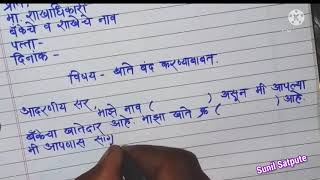 प्रति,
मा. शाखाधिकारी
बँकेचे व शाखेचे नाव
पत्ता-
दिनांक-
विषय - खाते बंद करण्याबाबत.
आदरणीय सर,
माझे नाव ( ) असून मी आपल्या
बँकेचा खातेदार आहे. माझा खाते क्र ( ) आहे.
मी आपणास सांग
Sunil Satpute